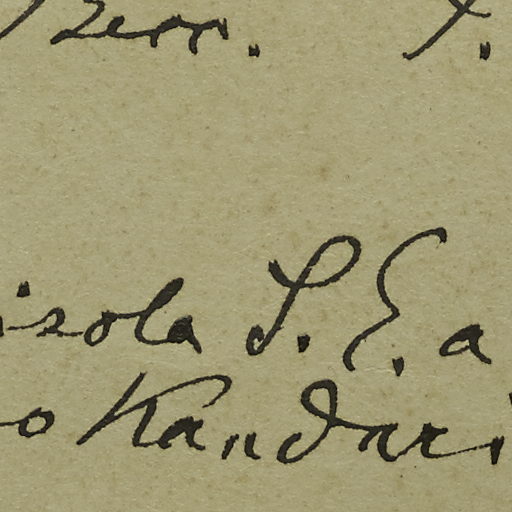 Berr. f.
isola S. E. a
o Kandari